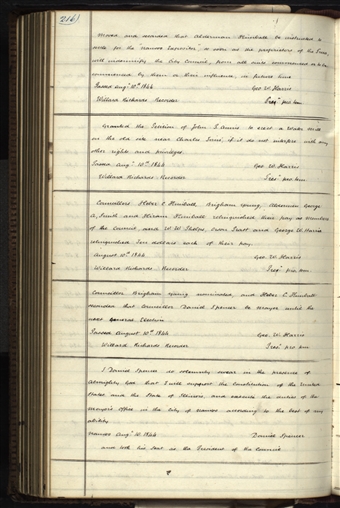 216)
Moved and seconded that Alderman Kimball be instructed to
write for the Nauvoo Expositor, as soon as the proprietors of the Same,
will indemnify the City Council, from all suits commenced or to be
commenced by them or their influence, in future time
Passed Augt 10th 1844 Geo. W. Harris
Willard Richards Recorder Prest pro tem.
Granted the Petition of John S. Annis to erect a Water Mill
on the old site near Charles Ivins, if it do not interfere with any
other rights and privileges.
Passed Augt 10th 1844 Geo. W. Harris
Willard Richards Recorder Prest pro tem
Councillors Heber C Kimball Brigham Young, Aldermen George
A, Smith and Hiram Kimball relinquished their pay as Members
of the Council and W W Phelps, Orson Pratt and George W. Harris
relinquished Ten dollars each of their pay.
August 10th 1844 Geo. W. Harris
Willard Richards Recorder Prest pro tem
Councillor Brigham Young nominated, and Heber C Kimball
seconded that Councillor Daniel Spencer be Mayor until the
next General Election.
Passed August 10th 1844 Geo. W. Harris
Willard Richards Recorder Prest pro tem
I Daniel Spencer do solemnly swear in the presence of
Almighty God that I will support the Constitution of the United
States and the State of Illinois, and execute the duties of the
Mayor's Office in the City of Nauvoo according to the best of my
ability.
Nauvoo Augt 10 1844 Daniel Spencer
and took his seat as the President of the Council